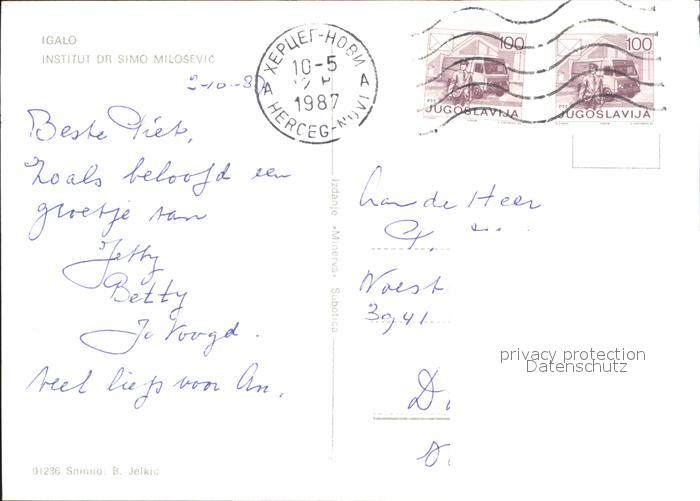 IGALO
INSTITUT DR SIMO MILOŠEVIĆ
2-10-87
ХЕРЦЕГ-НОВИ
10-5
1987
HERCEG-NOVI
A A
100
100
PTT JUGOSLAVIJA
PTT JUGOSLAVIJA
Beste Piet,
Zoals beloofd een
groetje van
Jetty
Betty
Jo Voogd.
veel liefs voor An.
Aan de Heer
3941
privacy protection
Datenschutz
Izdanje »Minerva« Subotica
01236 Snimio: B. Jelkić